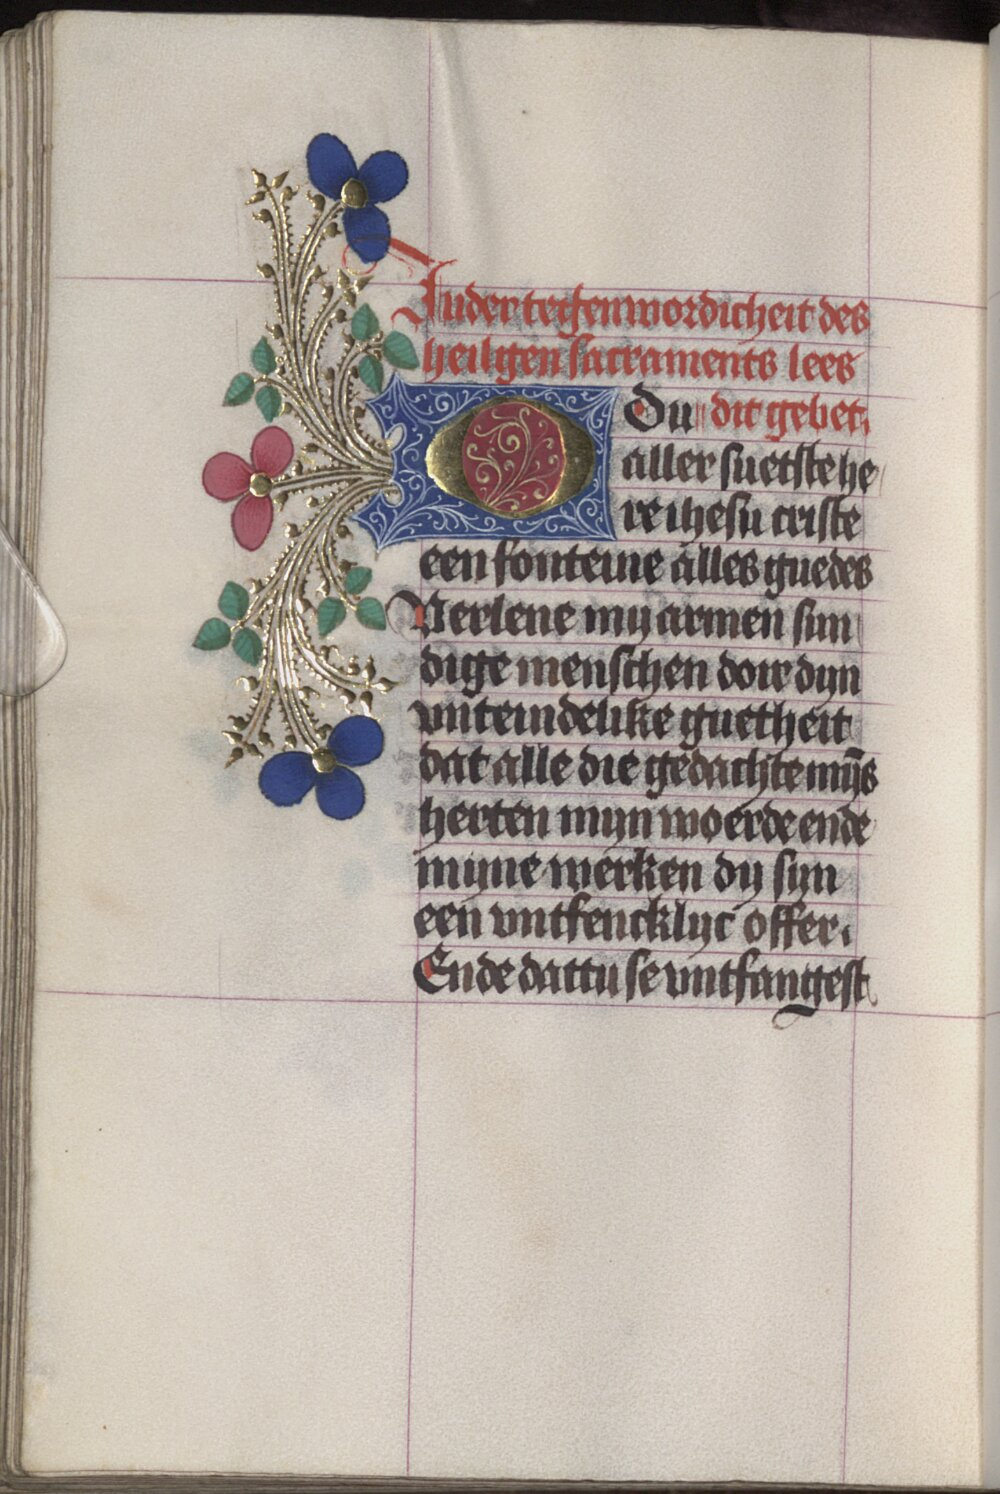 In der techenwordicheit des
heiligen sacraments lees
O Du dit gebet.
aller suetste he
re ihesu criste
een fonteine alles guedes
Verlene my armen sun
dige menschen doir dyn
vnteindelike guetheit
dat alle die gedachte mỹs
herten myn woerde ende
myne werken dy syn
een vntfencklyc offer.
Ende dattu se vntfangest